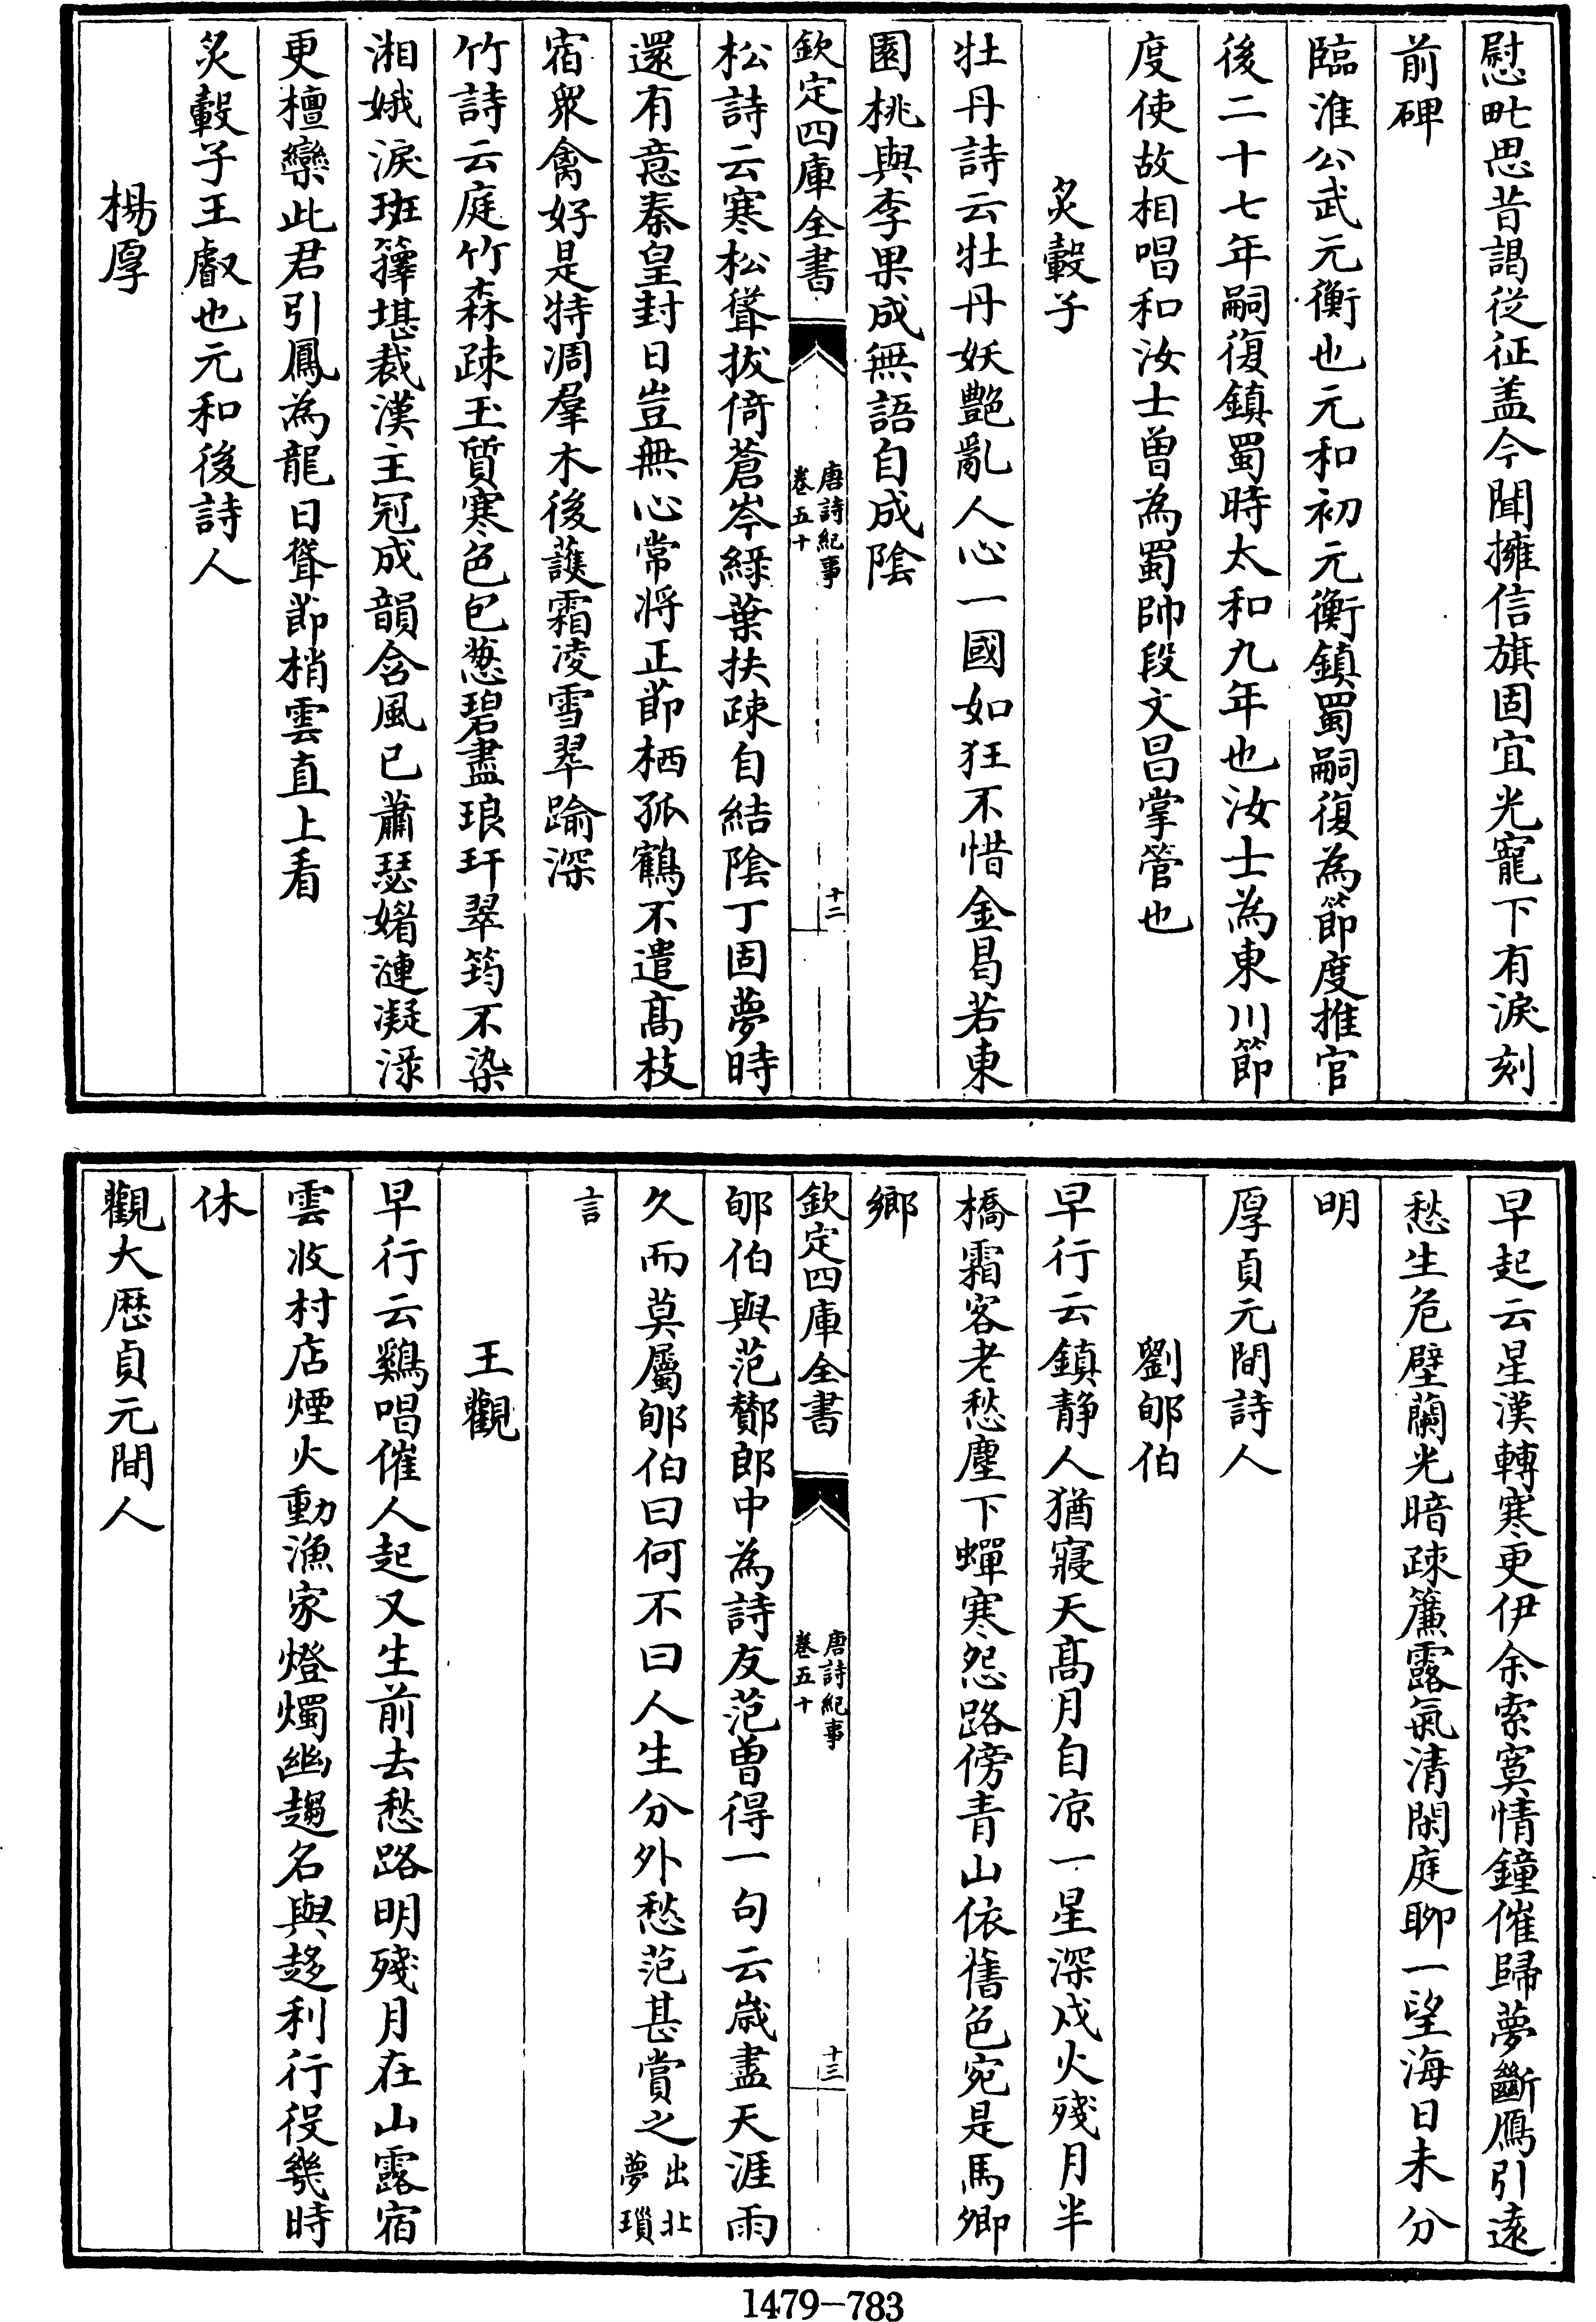 慰甿思昔謁從征盖今聞擁信旗固宜光寵下有淚刻
前碑
臨淮公武元衡也元和初元衡鎮蜀嗣復為節度推官
後二十七年嗣復鎮蜀時太和九年也汝士為東川節
度使故相唱和汝士曽為蜀帥段文昌掌管也
炙轂子
牡丹詩云牡丹妖艶亂人心一國如狂不惜金曷若東
園桃與李果成無語自成陰
欽定四庫全書
唐詩紀事
卷五十
十二
松詩云寒松聳拔倚蒼岑綠葉扶疎自結陰丁固夢時
還有意秦皇封日豈無心常將正節栖孤鶴不遣髙枝
宿衆禽好是特凋羣木後䕶霜凌雪翠踰深
竹詩云庭竹森疎玉質寒色包葱碧盡琅玕翠筠不染
湘娥淚班籜堪裁漢主冠成韻含風已蕭瑟媎漣凝淥
更檀欒此君引鳳為龍日聳節梢雲直上看
炙轂子王叡也元和後詩人
楊厚
早起云星漢轉寒更伊余索寞情鐘催歸夢斷鴈引遠
愁生危壁蘭光暗疎簾露氣清閑庭聊一望海日未分
明
厚貞元間詩人
劉郇伯
早行云鎮静人猶寢天髙月自凉一星深戍火殘月半
橋霜客老愁塵下蟬寒怨路傍青山依舊色宛是馬卿
鄉
欽定四庫全書
唐詩紀事
卷五十
十三
郇伯與范酇郎中為詩友范曽得一句云歲盡天涯雨
久而莫屬郇伯曰何不曰人生分外愁范甚賞之出北夢瑣
言
王觀
早行云鷄唱催人起又生前去愁路明殘月在山露宿
雲收村店煙火動漁家燈燭幽趨名與趍利行役幾時
休
觀大厯貞元間人
1479-783